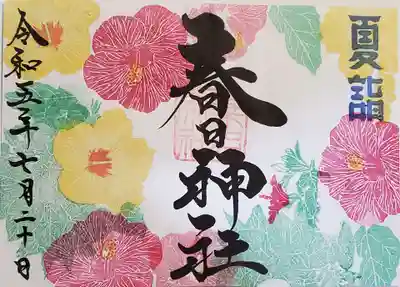 夏詣
春日神社
令和五年七月二十日